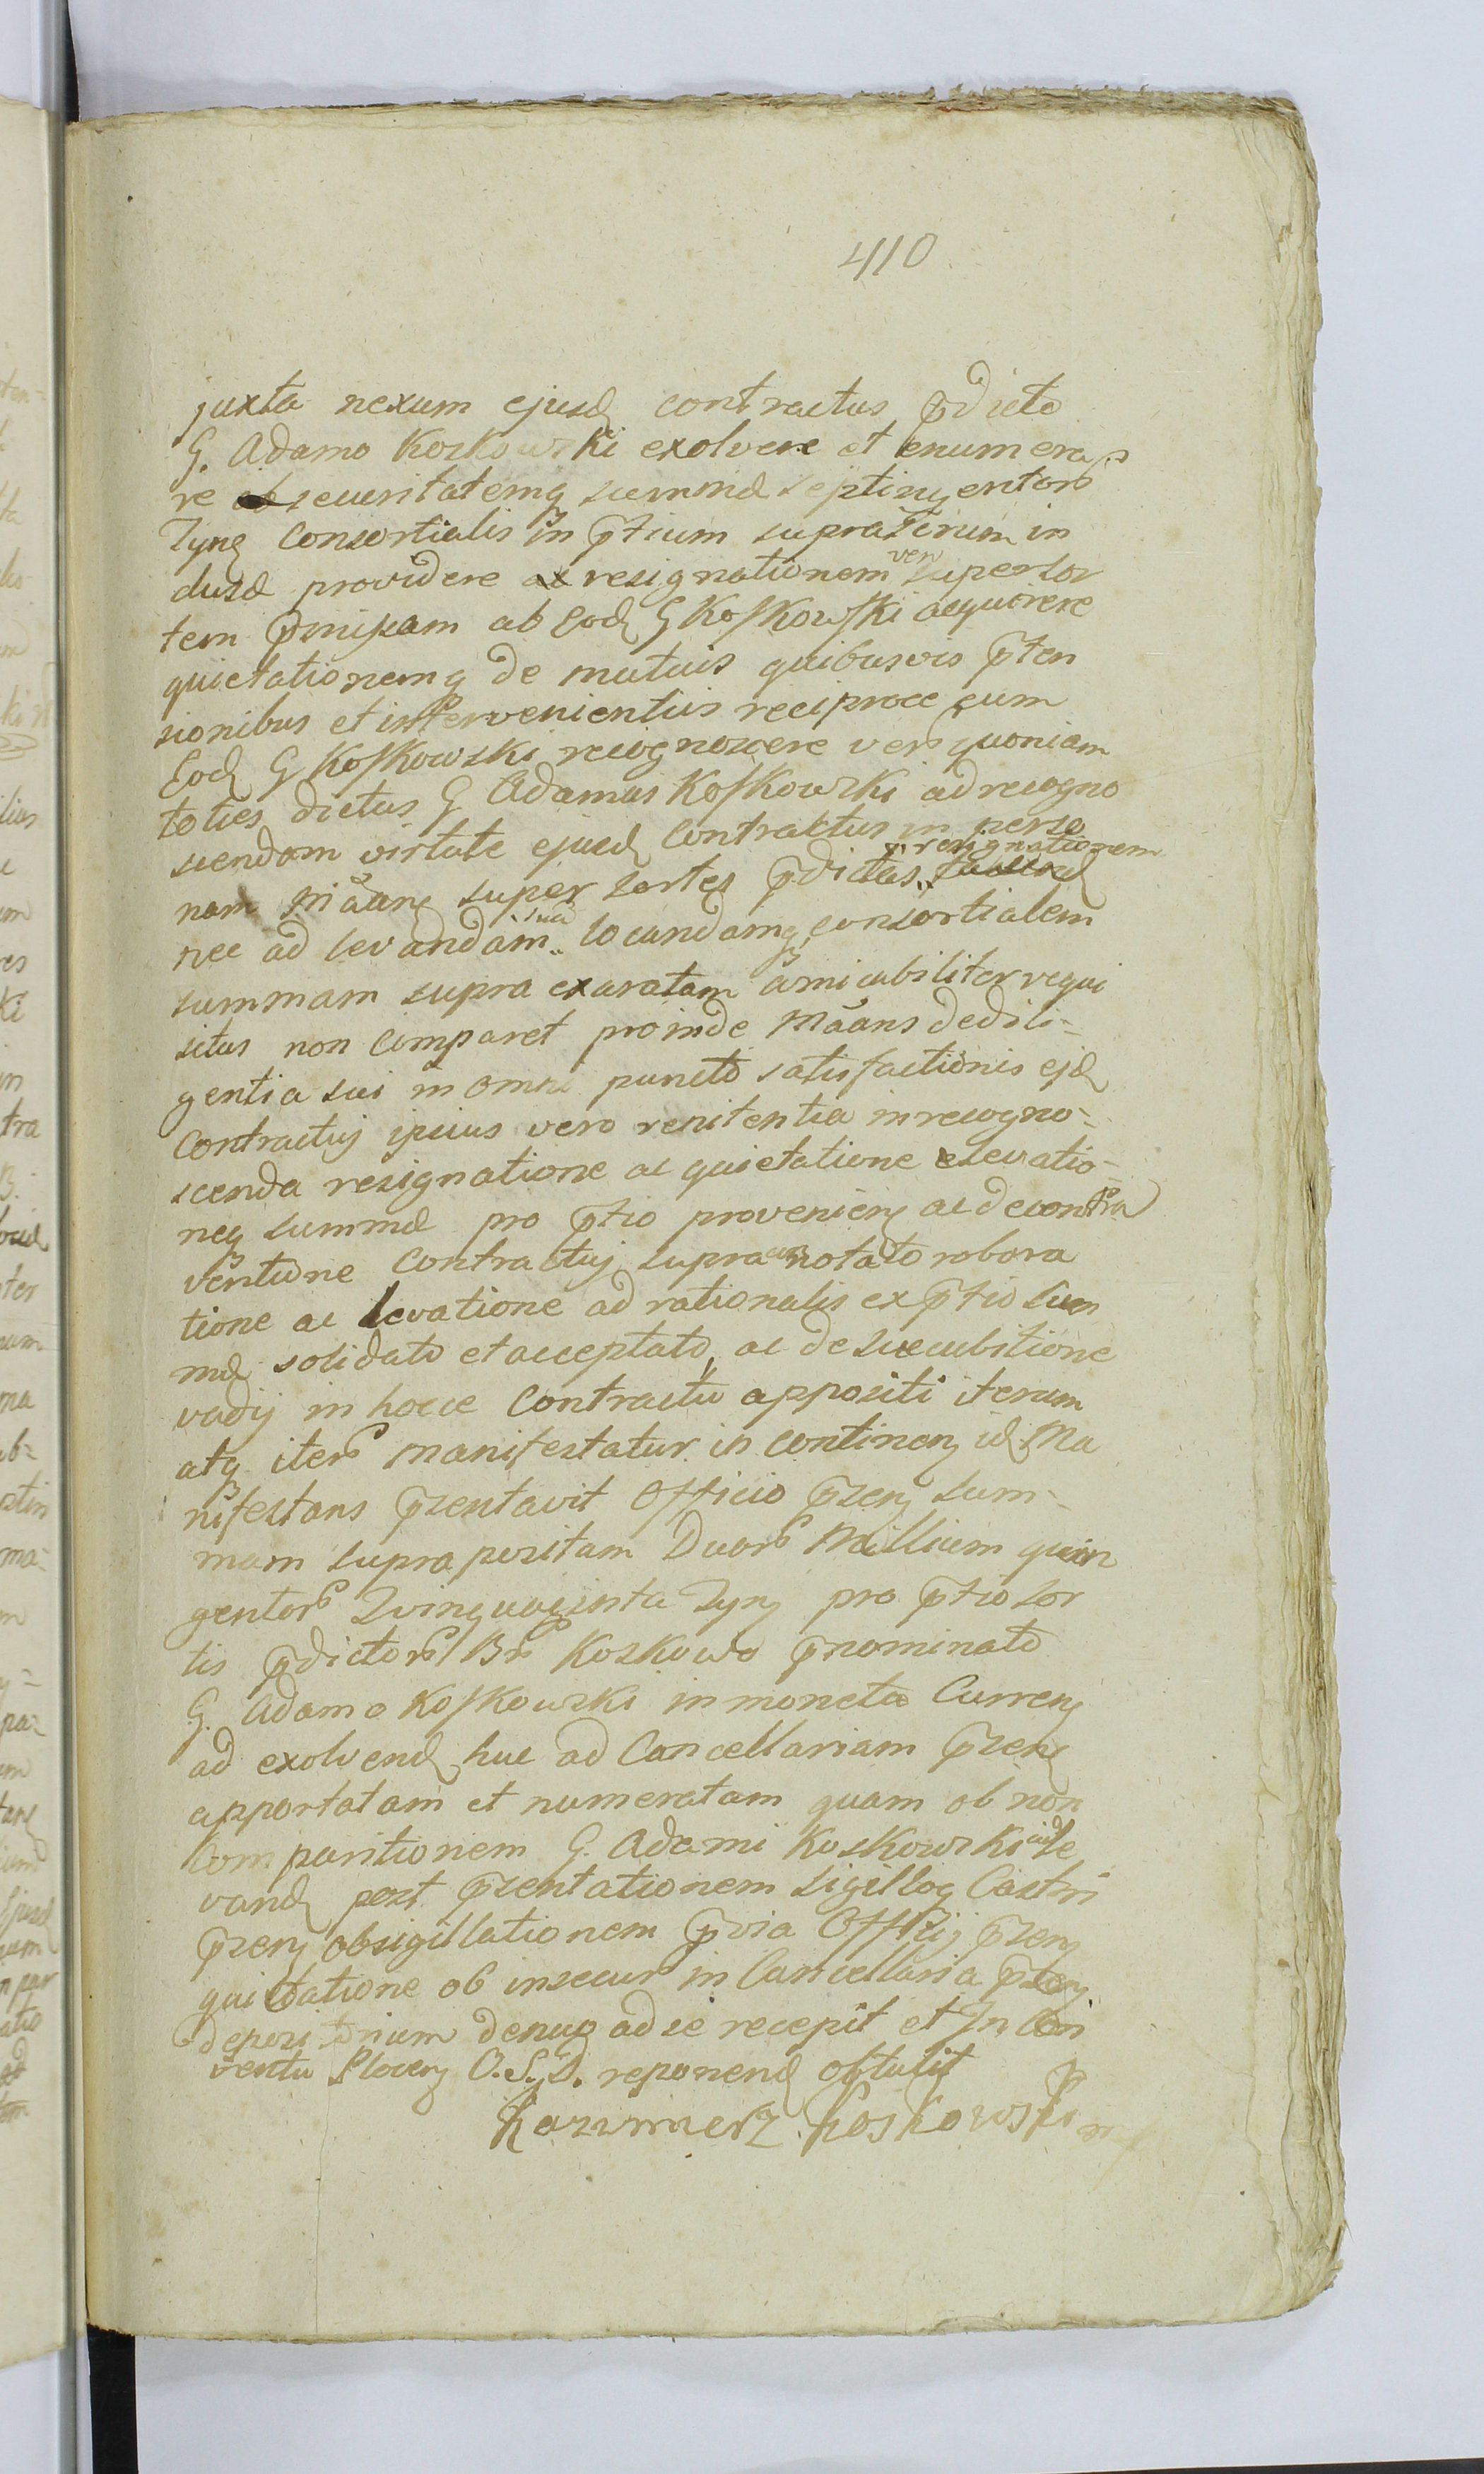 410
juxta nexum ejusd contractus pdicto
G. Adamo Koskowski exolvere et enumera
re securitatemq summæ septingentor
Tynf Consortialis in ptium supra Terum in
dusæ providere ac resignationem vero super sor
tem pmissam ab Eod G Koskowski acquirere
quietationemq de mutuis quibusvis pten
sionibus et intervenientiis reciproce cum
Eod G Koskowski recognoscere vero quoniam
toties dictus G Adamus Koskowski ad recogno
scendam virtute ejusd Contractus in perso
nam Mãans super sortes pdictas resignationem
nec ad levandam suã locandamq consortialem
summam supra exaratam amicabiliter requi
situs non comparet proinde Mãans de dili-
gentia sui in omni puncto satisfactionis ejd
Contractus ipsius vero renitentia in recogno-
scenda resignatione ac quietatione elevatio-
neq summæ pro ptio provenien ac de contra
ventione Contractus supra notato robora
tione ac levatione ad rationalis ex ptio sum
mæ solidato et acceptato, ac de succubitione
vadij in hocce Contractu appositi iterum
atq iter manifestatur in continen id Ma
nifestans pzentavit Officio pzen sum-
mam supra positam Duor Millium quin
gentor Quinquaginta Tynf pro ptio sor
tis pdictor Br Koskowo pnominato
G. Adamo Koskowski in moneta Curren
ad exolvend huc ad Cancellariam pzen
apportatam et numeratam quam ob non
Comparitionem G. Adami Koskowski ad le
vand post pzentationem Sigilloq Castri
pzen obsigillationem pvia Offkij pzen
quietatione ob insecur in Cancellaria pzen
depositorium denuo ad se recepit et In Con
ventu Plocen O.S.D. reponend obtulit
Kazimierz Koskowski mp